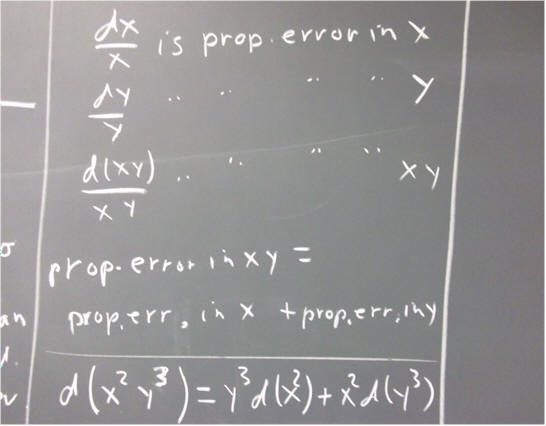 dx/x is prop. error in x
dy/y " " " " y
d(xy)/xy " " " " xy
prop. error in xy =
prop. err. in x + prop. err. in y
d(x²y³) = y³d(x²) + x²d(y³)